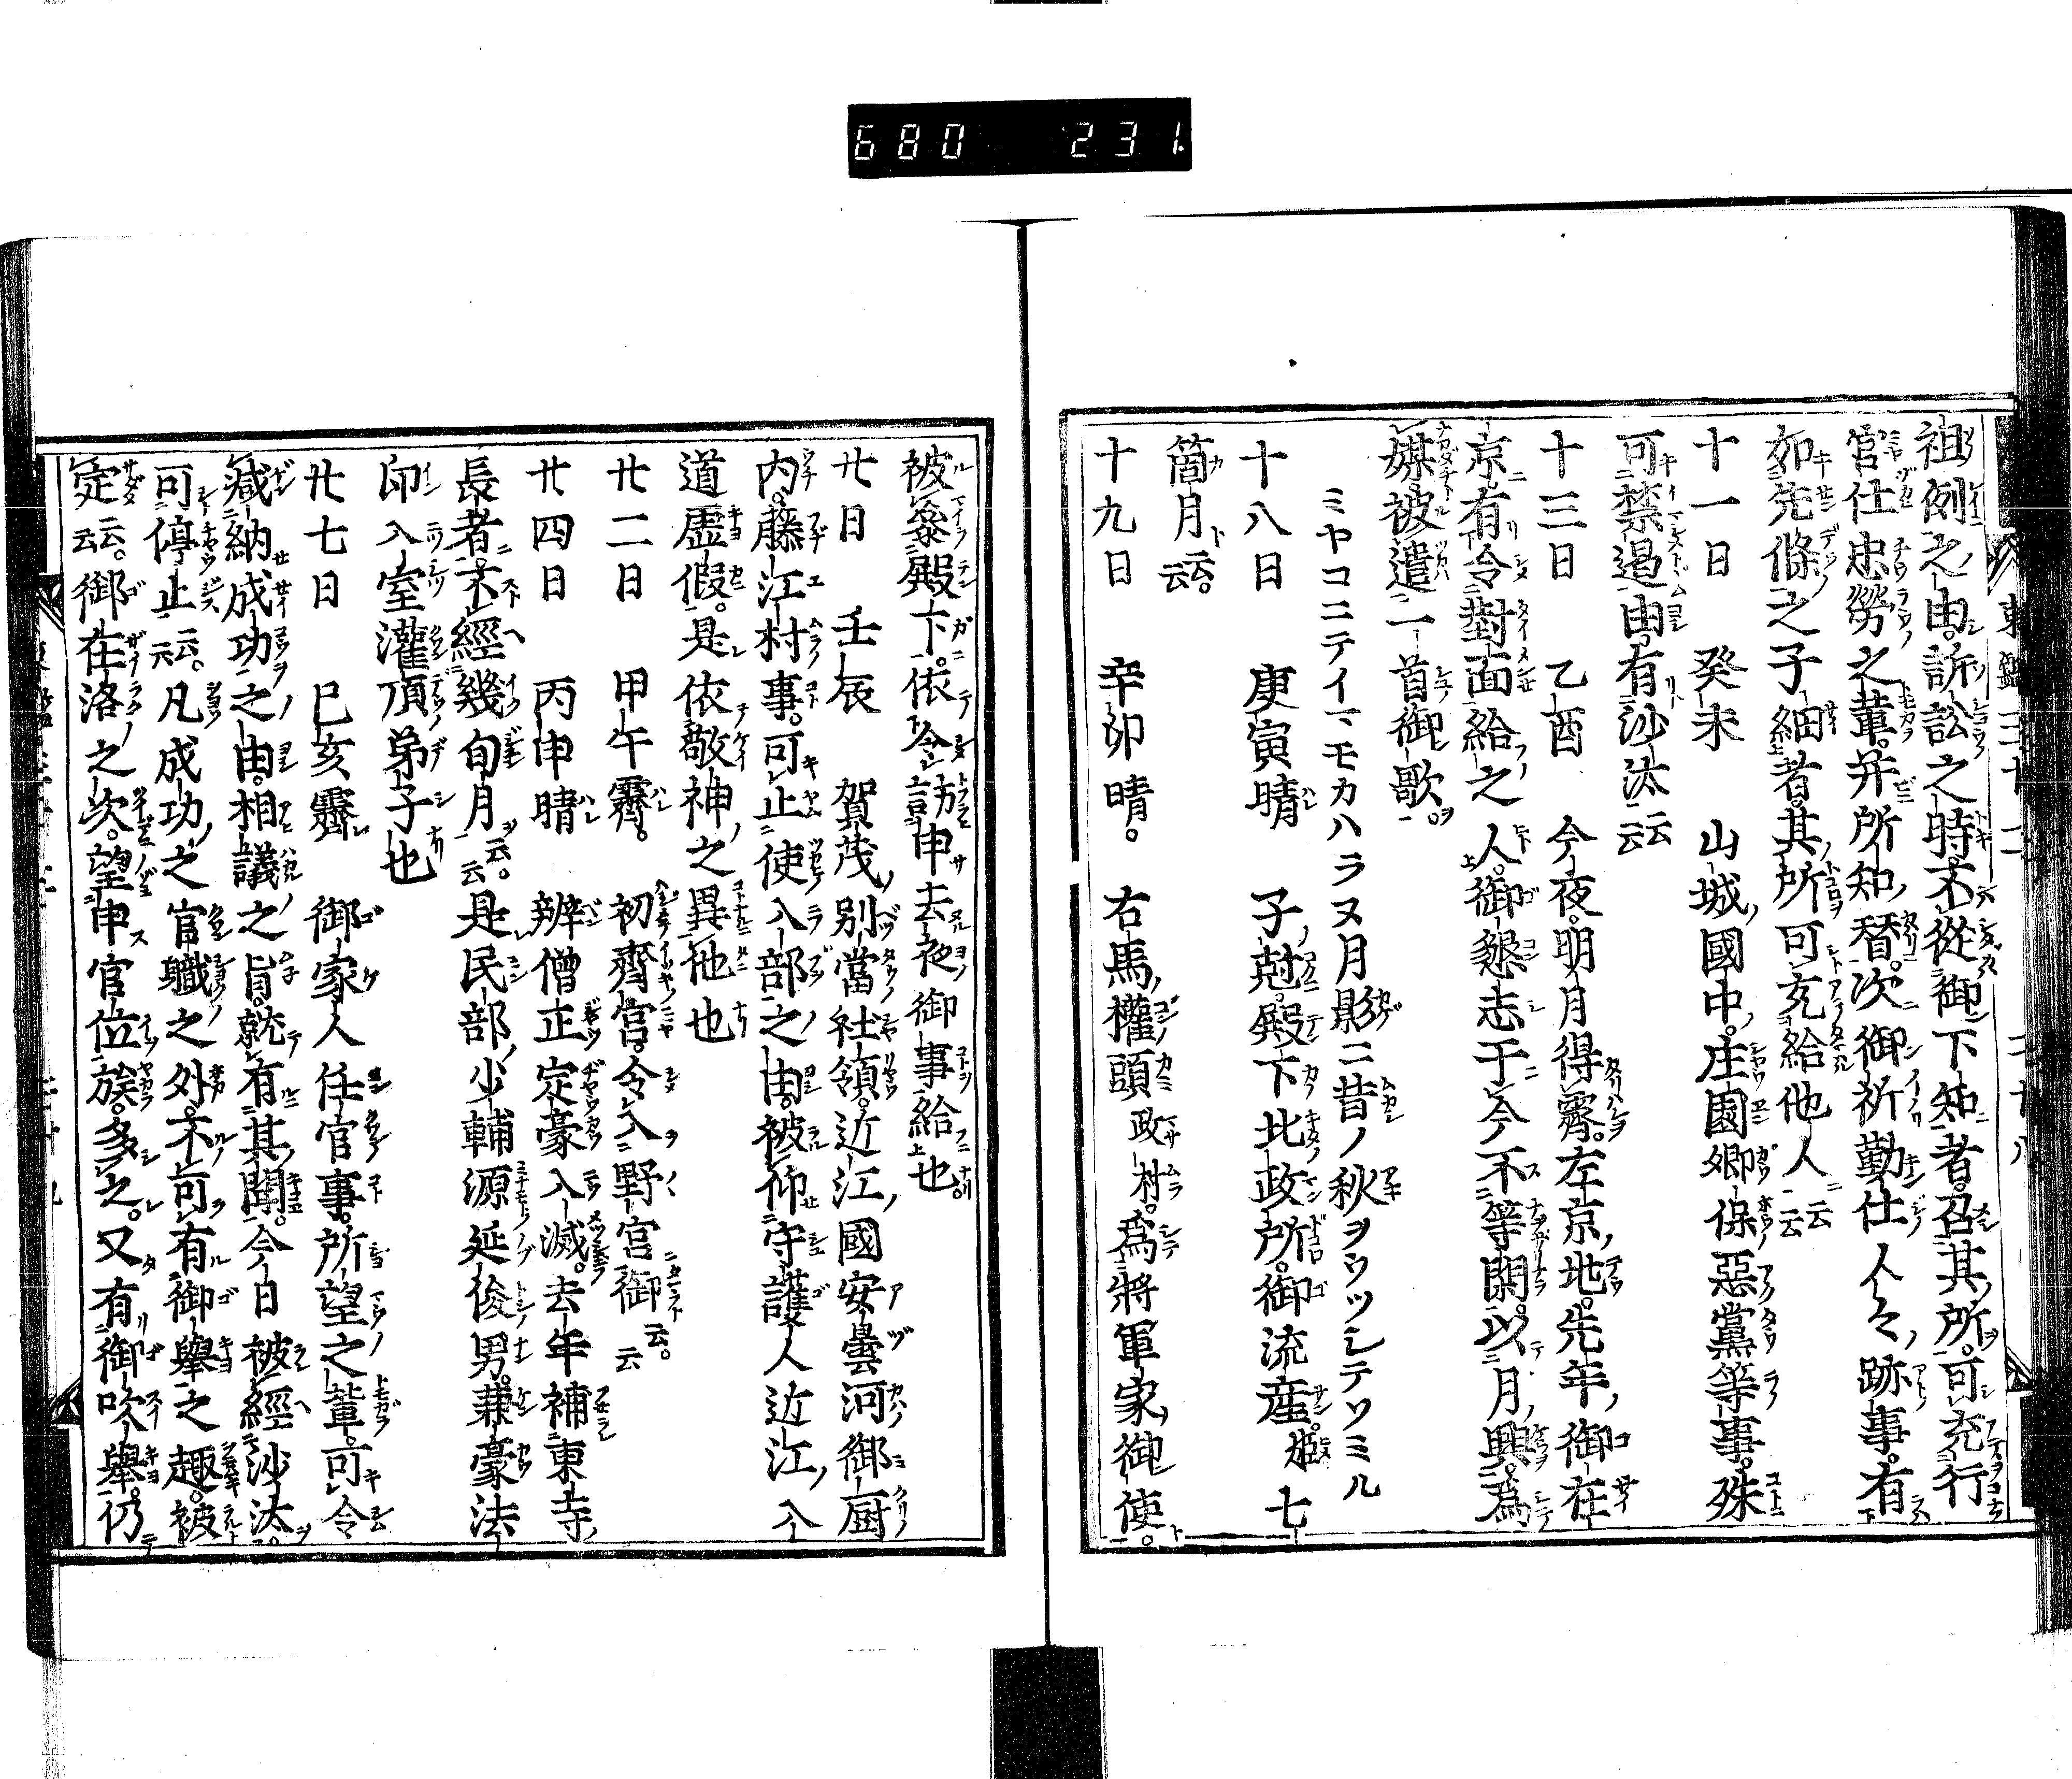 680 231
祖例之由訴訟之時不從御下知者召其所可充行
官仕忠勞之輩并所知替次御祈勤仕人々跡事有
如先條之子細者其所可充給他人云云
十一日 癸未 山城國中庄園郷保惡黨等事殊
可禁遏由有沙汰云云
十三日 乙酉 今夜明月得霽左京地先年御在
京有令對面給之人御懇志于今不等閑以月興爲
媒被遣一首御歌
ミヤコニテイマモカハラヌ月影ニ昔ノ秋ヲウツシテソミル
十八日 庚寅晴 子尅殿下北政所御流産姫七
箇月云云
十九日 辛卯晴 右馬權頭政村爲將軍家御使
被參殿下依令訪申去夜御事給也
廿日 壬辰 賀茂別當社領近江國安曇河御厨
内藤江村事可止使入部之由被仰守護人近江入
道虚假是依敬神之異他也
廿二日 甲午霽 初齊宮令入野宮御云云
廿四日 丙申晴 辨僧正定豪入滅去年補東寺
長者不經幾旬月云云是民部少輔源延俊男兼豪法
印入室灌頂弟子也
廿七日 巳亥霽 御家人任官事所望之輩可令
減納成功之由相議之旨就有其聞今日被經沙汰
可停止云云凡成功之官職之外不可有御擧之趣被
定云云御在洛之次望申官位族多之又有御吹擧仍